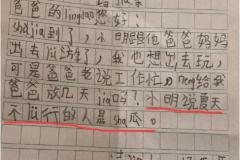 爸爸的lingdao你好：
shujia到了，小明跟他爸爸妈妈
出去旅游了，我也想出去玩，
可是爸爸老说工作忙，neng给我
爸爸放几天jia吗？小明说夏天
不旅行的人是sha瓜。